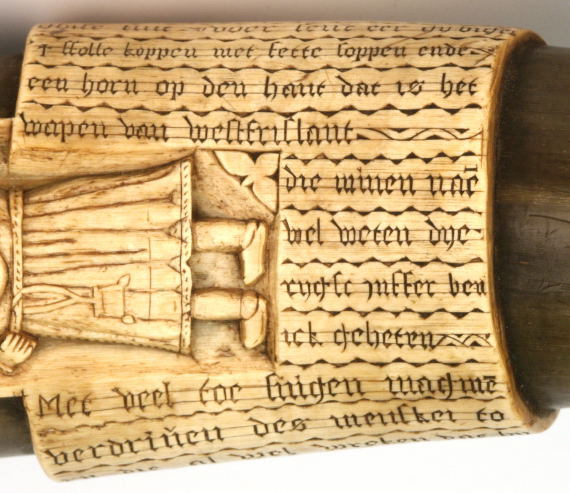 stolle koppen met fette soppen ende
een horn op den hant dat is het
wapen van westfrislant
die minen naē
wel weten dye
ryche juffer ben
ick geheten
Met veel toe suigen machmē
verdriuen des menskei to
al wel